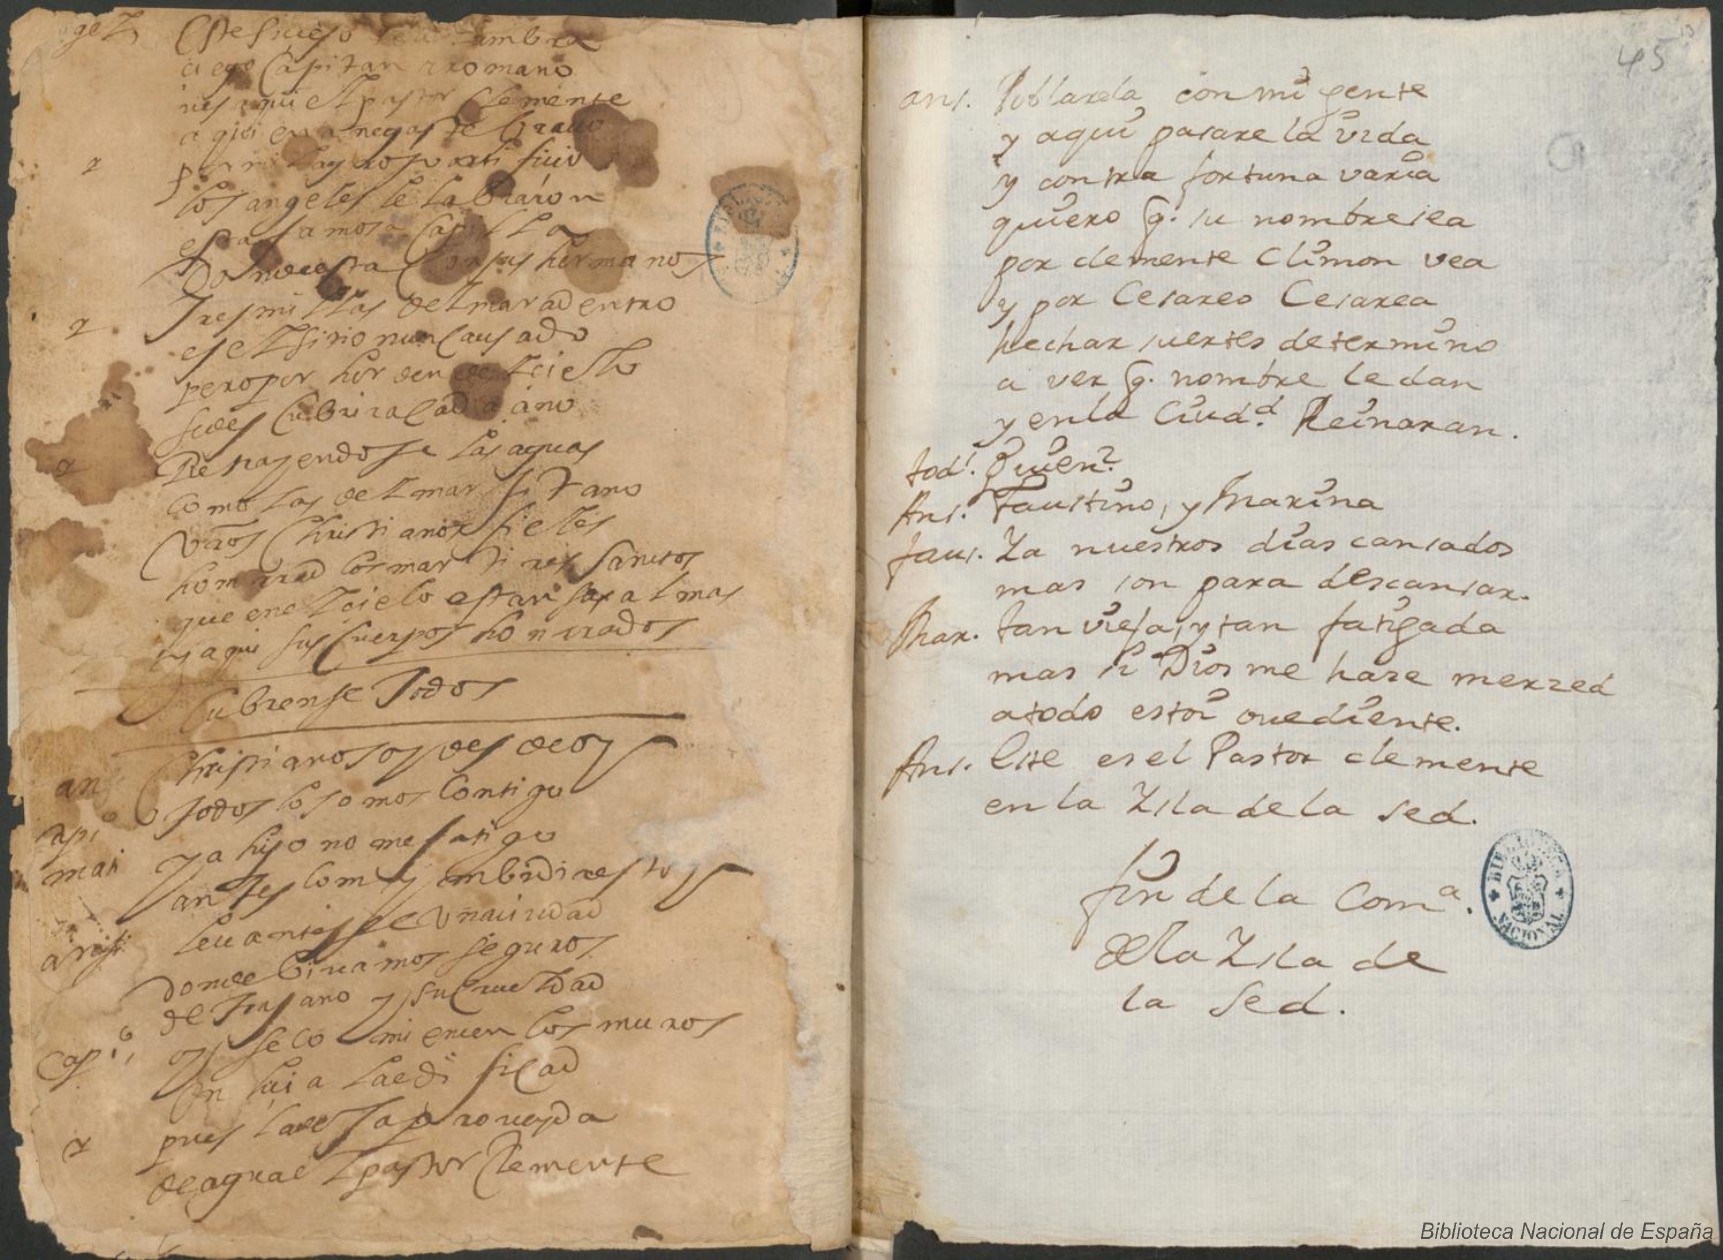 gel
Este suceso
ciego Capitan rromano
ves aqui el pastor Clemente
a qui en anegaste
por milagroso
los angeles le labraron
esta famosa Capilla
Donde esta Con sus hermanos
Tres millas del mar adentro
es el sitio nunca usado
pero por horden del cielo
se des cubrira cada año
Retrayendose las aguas
como las del mar
Christianos fieles
honrrad los martires santos
que en el cielo estan sus almas
y aqui sus Cuerpos honrrados
Cubrense Todos
an
Christiano soy desde oy
capi
Todos lo somos Contigo
mari
Ya hijo no me fatigo
antes
aristi
leuantesse una ciudad
donde biuamos seguros
de Trajano y su Crueldad
capi
oy se comiencen los muros
En la isla la edificad
pues la deja proueyda
de agua el pastor Clemente
45
ans. Poblarela con mi gente
y aqui pasare la vida
y contra fortuna varia
quiero q. su nombre sea
por clemente Climon vea
y por Cesareo Cesarea
hechar suertes determino
a ver q. nombre le dan
y en la Ciudd. Reinaran.
tods. Quien?
Ans. Faustino, y Marina
faus. Ya nuestros dias cansados
mas son para descansar.
Mar. tan vieja, y tan fatigada
mas si Dios me hase merzed
a todo estoi ouediente.
Ans. Este es el Pastor clemente
en la Ysla de la sed.
fin de la Coma.
de la Ysla de
la Sed.
BIBLIOTECA NACIONAL
Biblioteca Nacional de España